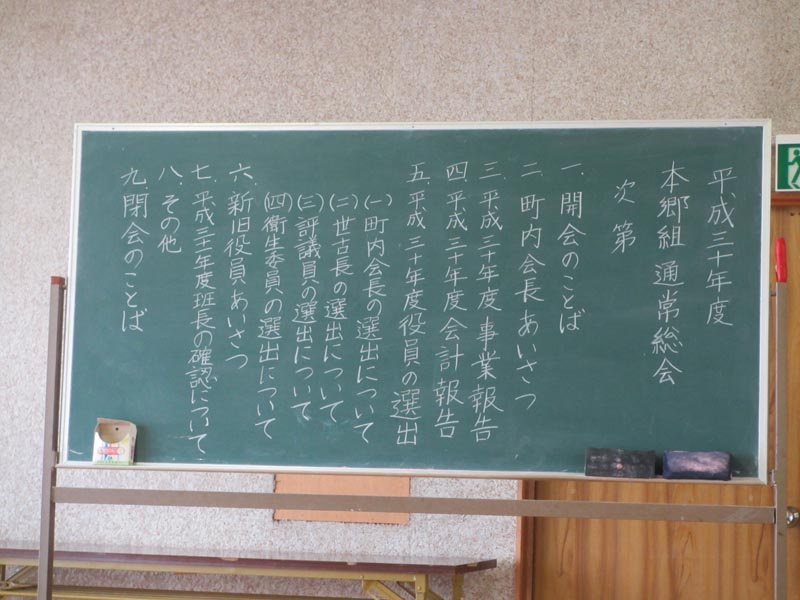 平成三十年度
本郷組 通常総会
次第
一、開会のことば
二、町内会長あいさつ
三、平成三十年度事業報告
四、平成三十年度会計報告
五、平成三十年度役員の選出
(一)町内会長の選出について
(二)世古長の選出について
(三)評議員の選出について
(四)衛生委員の選出について
六、新旧役員あいさつ
七、平成三十一年度班長の確認について
八、その他
九、閉会のことば